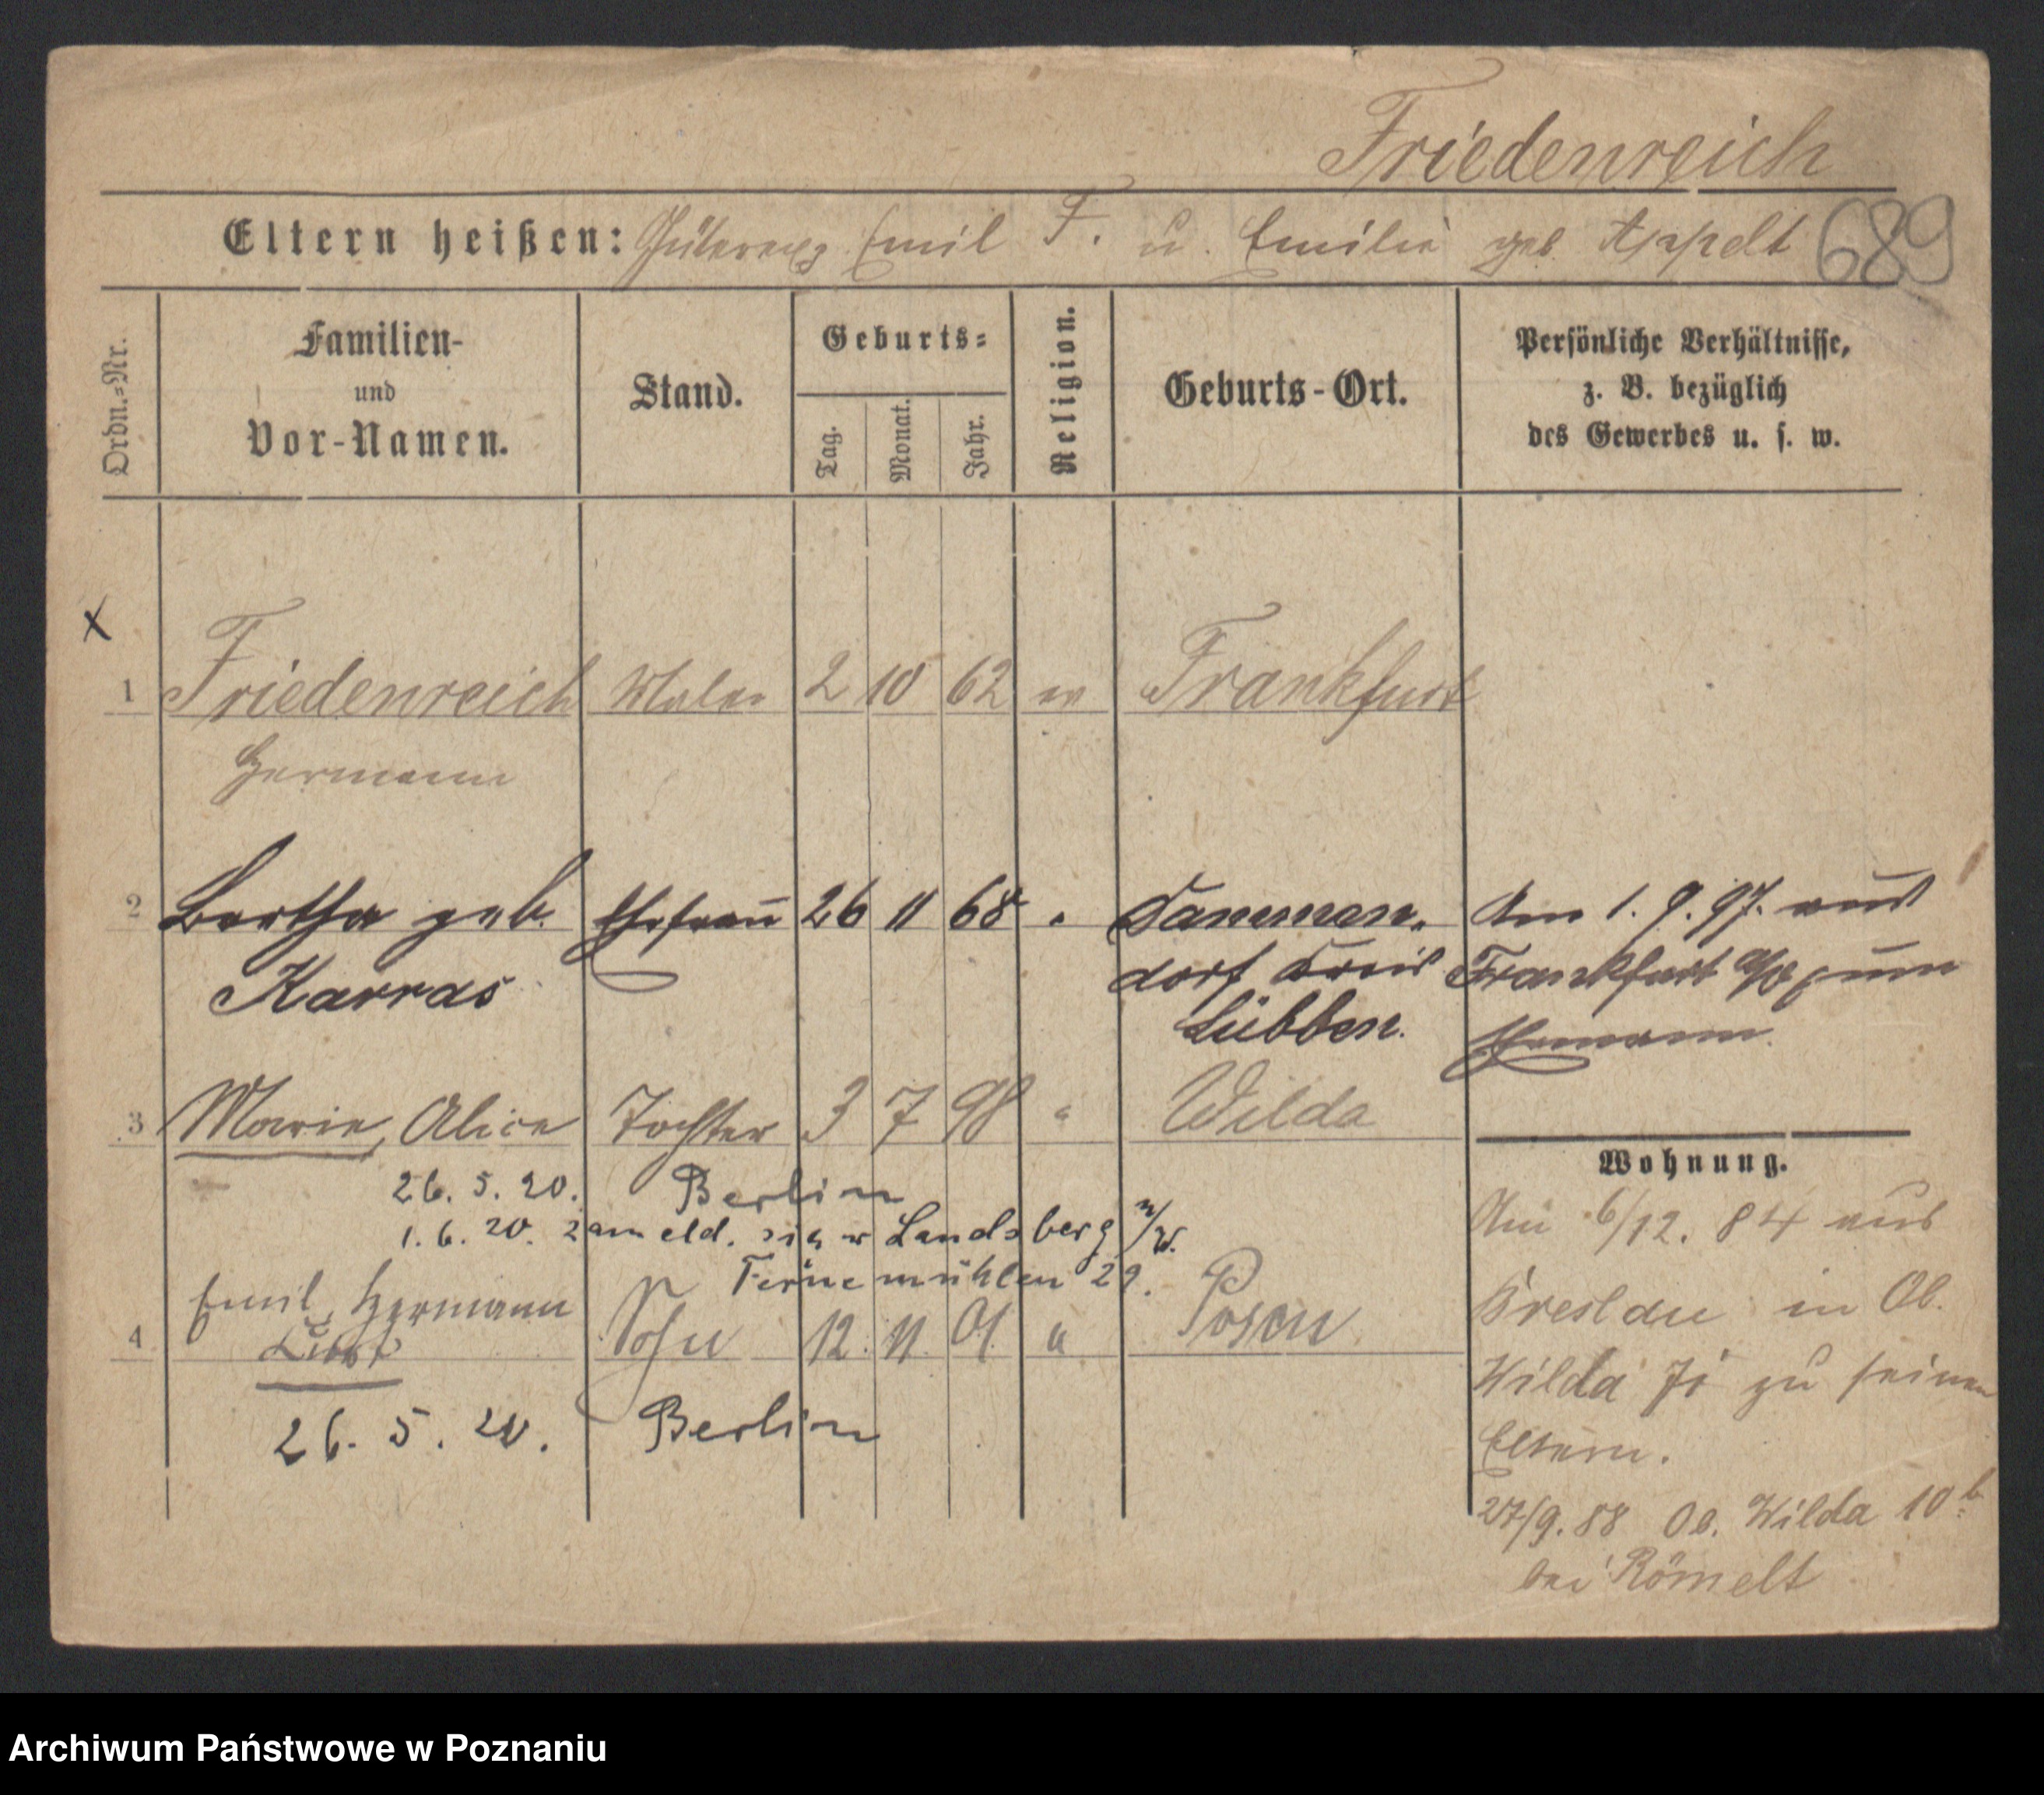 Friedenreich
Eltern heißen: Emil F. u. Emilie geb. Appelt
689
Ordn.-Nr.
Familien-
und
Vor-Namen.
Stand.
Geburts-
Tag.
Monat.
Jahr.
Religion.
Geburts-Ort.
Persönliche Verhältnisse,
z. B. bezüglich
des Gewerbes u. s. w.
x
1 Friedenreich Maler 2 10 62 ev Frankfurt
Hermann
2 Bertha geb. Ehefrau 26 11 68 " Dammen-
Karras
dorf Kreis
Lübben.
Am 1. 9. 97. aus
Frankfurt a/O zum
Ehemann.
3 Marie, Alice Tochter 3 7 98 " Wilda
26. 5. 20. Berlin
1. 6. 20. Landsberg a/W.
29.
4 Emil, Hermann Sohn 12. 11. 01. " Posen
26. 5. 20. Berlin
Wohnung.
Am 6/12. 84 aus
Breslau in Ob.
Wilda 71 zu seinen
Eltern.
27/9. 88 Ob. Wilda 10b
bei Römelt
Archiwum Państwowe w Poznaniu